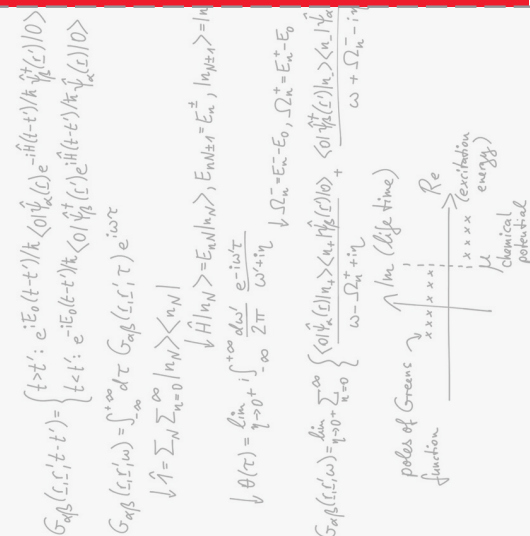 G_αβ(r,r';t-t') = { t>t': e^{iE₀(t-t')/ħ} <0|ψ̂_α(r) e^{-iĤ(t-t')/ħ} ψ̂†_β(r')|0>
t<t': e^{-iE₀(t-t')/ħ} <0|ψ̂†_β(r') e^{iĤ(t-t')/ħ} ψ̂_α(r)|0>
G_αβ(r,r',ω) = ∫_{-∞}^{+∞} dτ G_αβ(r,r',τ) e^{iωτ}
↓ 1̂ = Σ_N Σ_{n=0}^∞ |n_N><n_N|
↓ Ĥ|n_N> = E_{nN}|n_N>, E_{nN±1} = E_n^±, |n_{N±1}> = |n
↓ θ(τ) = lim_{η→0+} i ∫_{-∞}^{+∞} dω'/2π e^{-iω'τ}/(ω'+iη)
↓ Ω_n^- = E_n^- - E_0, Ω_n^+ = E_n^+ - E_0
G_αβ(r,r',ω) = lim_{η→0+} Σ_{n=0}^∞ { <0|ψ̂_α(r)|n_+><n_+|ψ̂†_β(r')|0>/(ω-Ω_n^+ + iη) + <0|ψ̂†_β(r')|n_-><n_-|ψ̂_α/(ω+Ω_n^- - iη
poles of Greens
function
Im (life time)
x x x x x x
x x x x
μ
chemical
potential
Re
(excitation
energy)